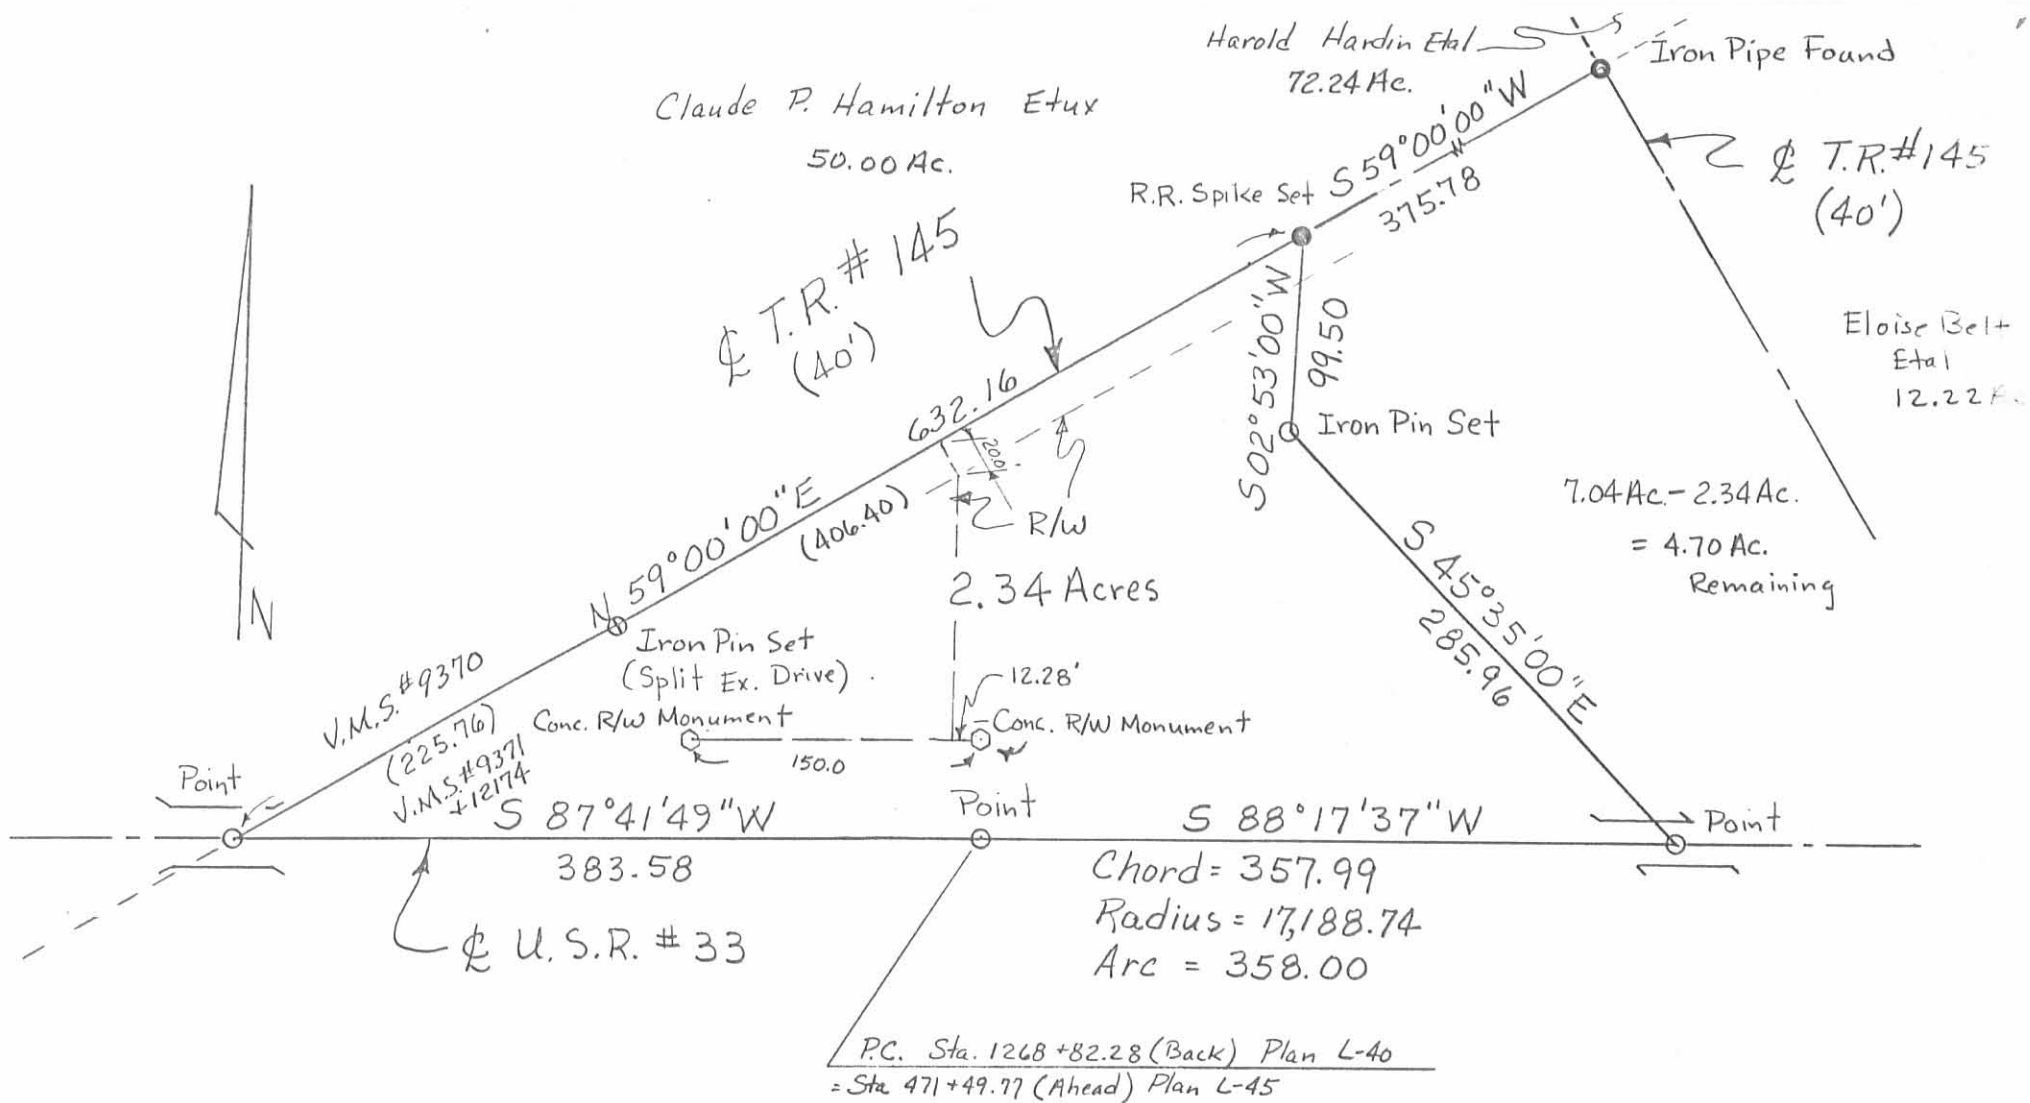 Harold Hardin Etal
72.24 Ac.
Iron Pipe Found
Claude P. Hamilton Etux
50.00 Ac.
S 59°00'00"W
375.78
R.R. Spike Set
℄ T.R.#145
(40')
℄ T.R.# 145
(40')
S 02°53'00"W
99.50
Eloise Belt
Etal
12.22
632.16
20.0'
Iron Pin Set
N 59°00'00"E
(406.40)
R/W
7.04 Ac. - 2.34 Ac.
= 4.70 Ac.
Remaining
S 45°35'00"E
285.96
2.34 Acres
N
Iron Pin Set
(Split Ex. Drive)
V.M.S.#9370
(225.76)
V.M.S.#9371
+12174
12.28'
Conc. R/W Monument
Conc. R/W Monument
150.0
Point
Point
Point
S 87°41'49"W
383.58
S 88°17'37"W
Chord = 357.99
Radius = 17,188.74
Arc = 358.00
℄ U.S.R. # 33
P.C. Sta. 1268+82.28 (Back) Plan L-40
= Sta 471+49.77 (Ahead) Plan L-45